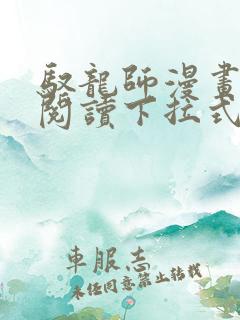 馭龍師漫畫
閱讀下拉式
車服志
未任同意禁止转载